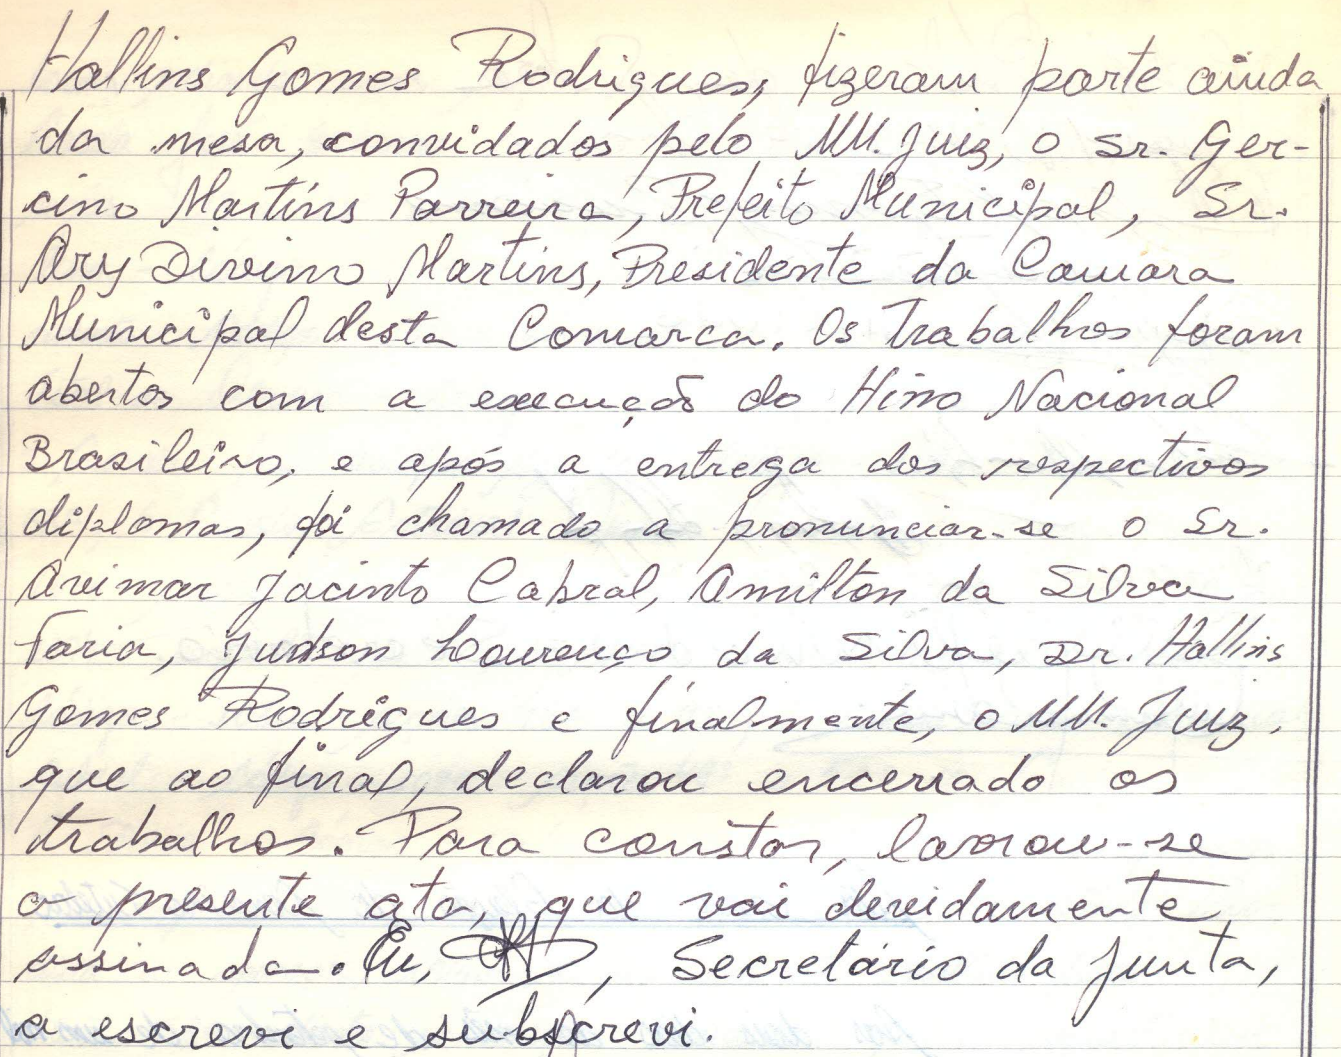 Hallins Gomes Rodrigues, fizeram parte ainda
da mesa, convidados pelo MM. Juiz, o Sr. Ger-
cino Martins Parreira, Prefeito Municipal, Sr.
Ary Divino Martins, Presidente da Camara
Municipal desta Comarca. Os trabalhos foram
abertos com a execução do Hino Nacional
Brasileiro, e após a entrega dos respectivos
diplomas, foi chamado a pronunciar-se o Sr.
Avimar Jacinto Cabral, Amilton da Silva
Faria, Judson Lourenço da Silva, Dr. Hallins
Gomes Rodrigues e finalmente, o MM. Juiz,
que ao final, declarou encerrado os
trabalhos. Para constar, lavrou-se
a presente ata, que vai devidamente
assinada. Eu, , Secretário da Junta,
a escrevi e subscrevi.